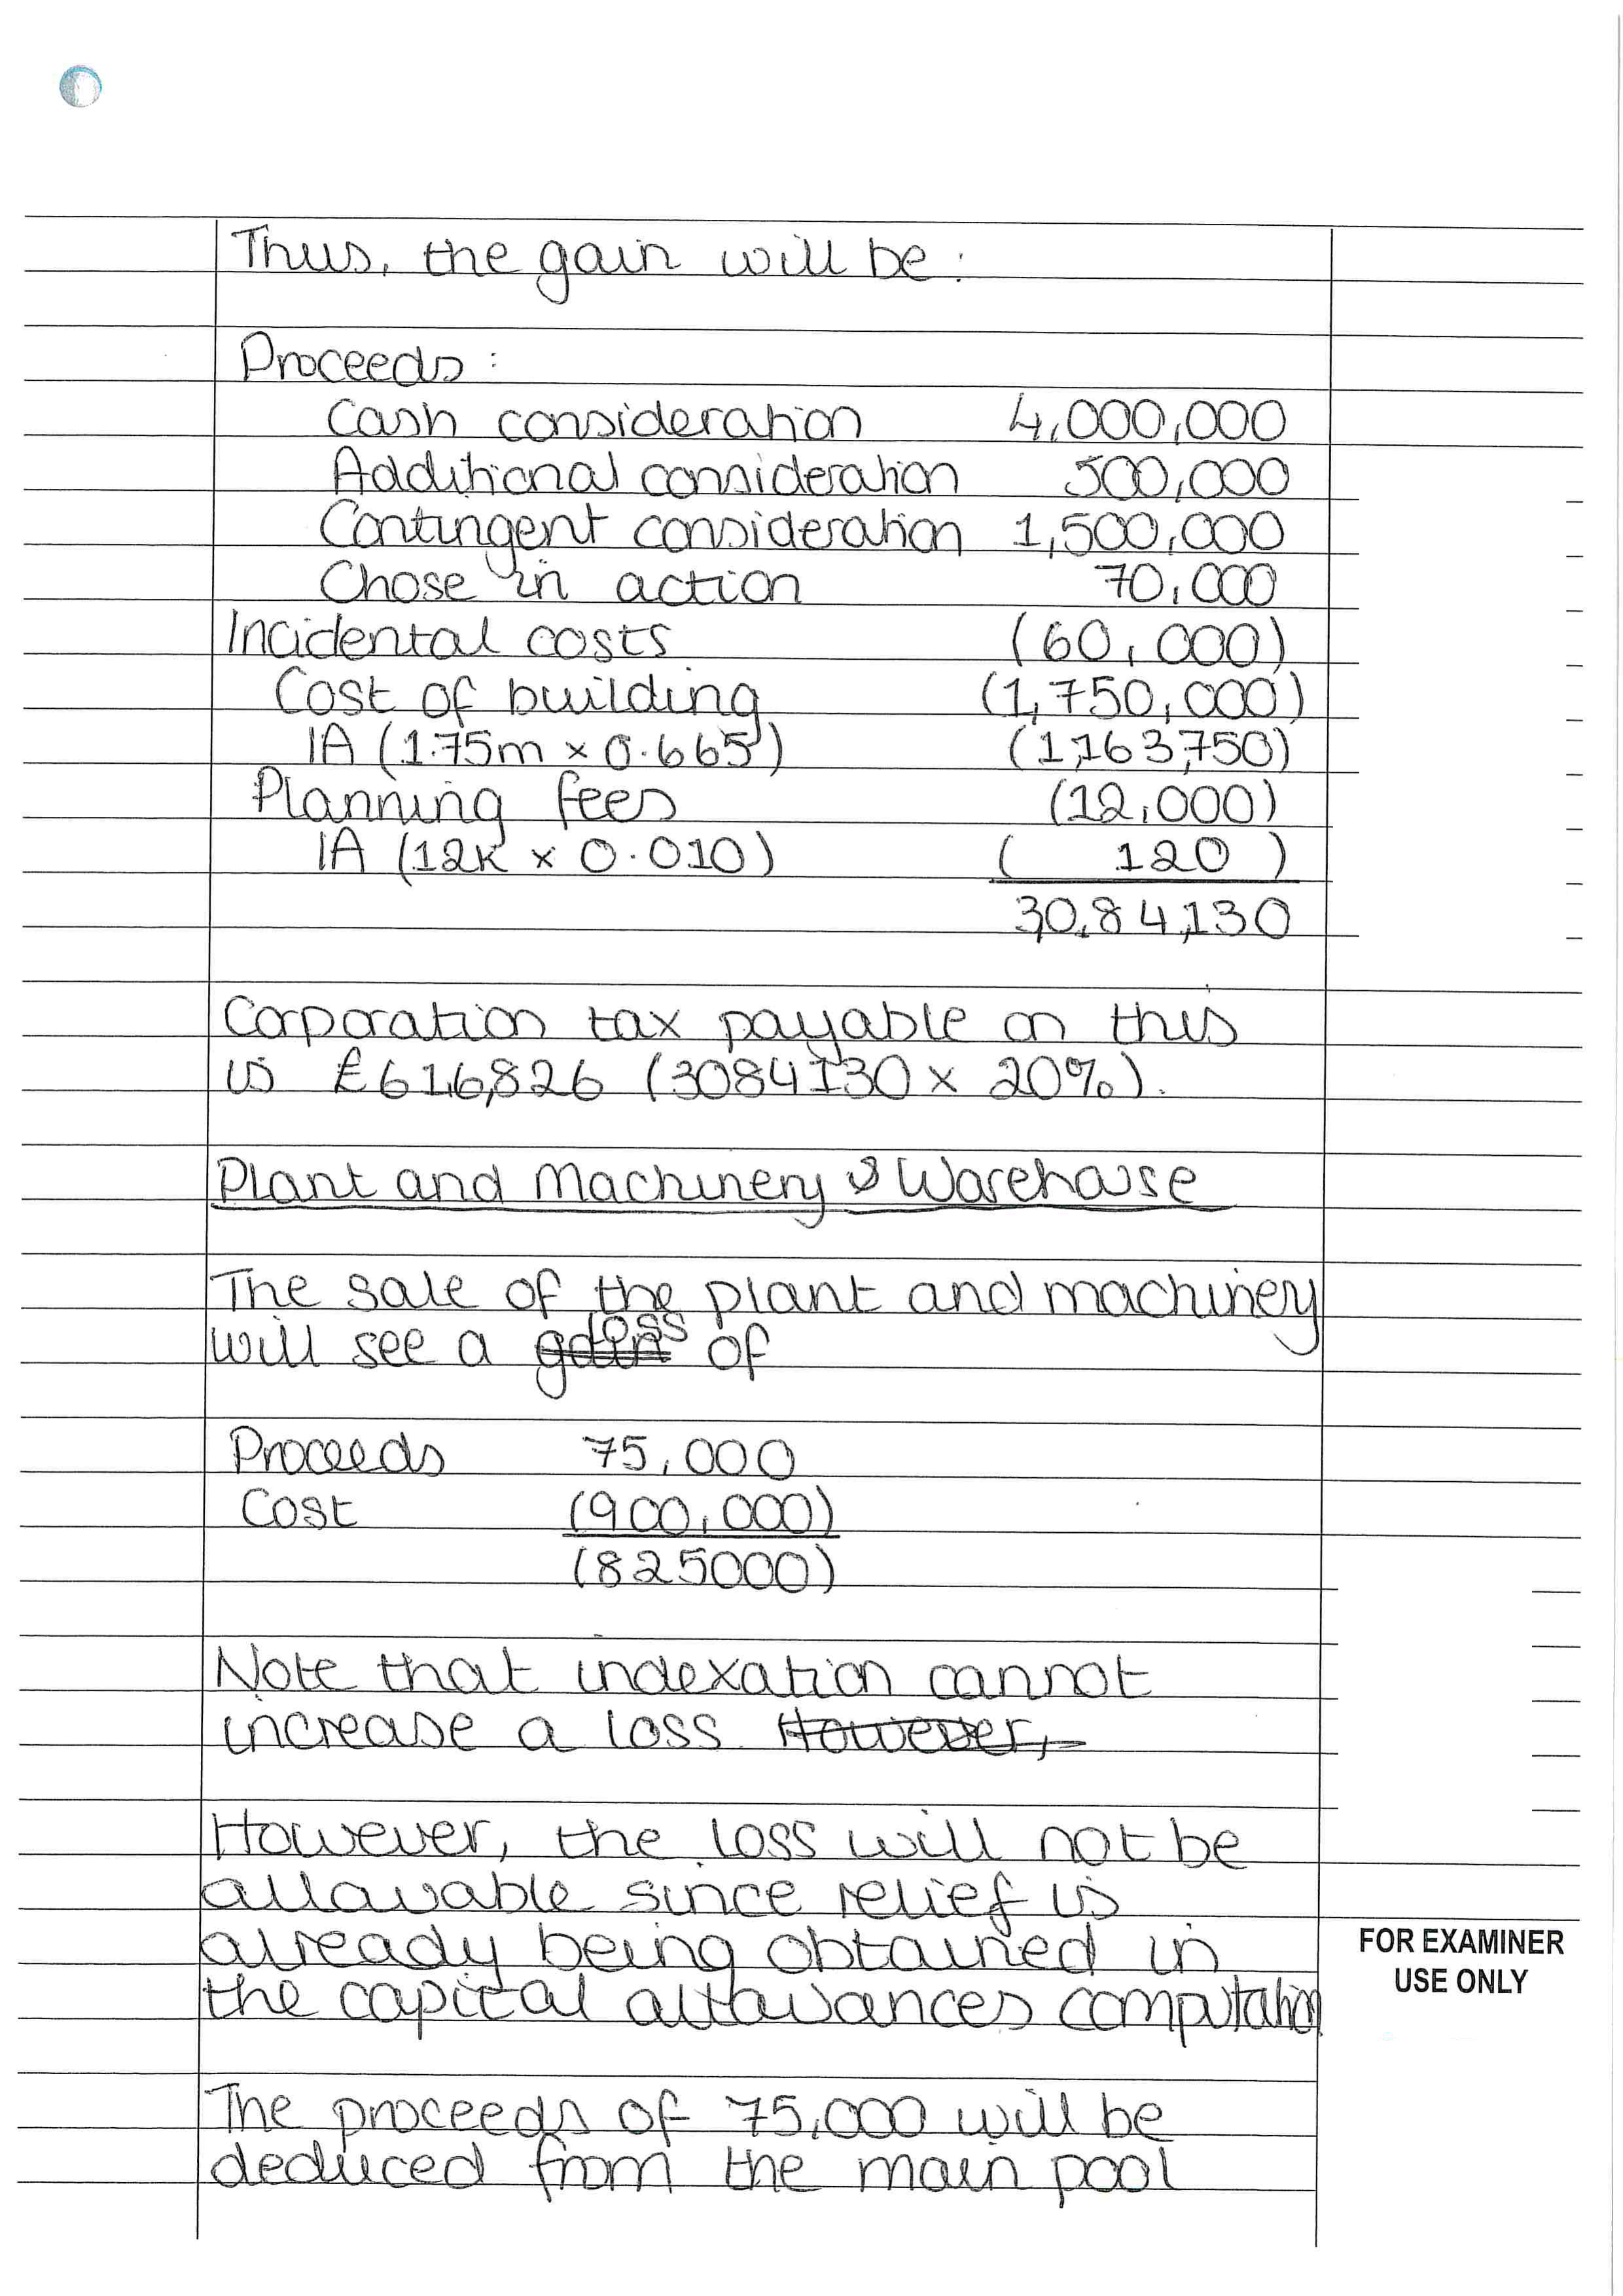 Thus, the gain will be:
Proceeds:
Cash consideration 4,000,000
Additional consideration 500,000
Contingent consideration 1,500,000
Chose in action 70,000
Incidental costs (60,000)
Cost of building (1,750,000)
IA (1.75m × 0.665) (1,163,750)
Planning fees (12,000)
IA (12k × 0.010) ( 120 )
30,84,130
Corporation tax payable on this
is £616,826 (3084130 × 20%).
Plant and Machinery & Warehouse
The sale of the plant and machinery
will see a gain loss of
Proceeds 75,000
Cost (900,000)
(825000)
Note that indexation cannot
increase a loss. However,
However, the loss will not be
allowable since relief is
already being obtained in
the capital allowances computation
FOR EXAMINER
USE ONLY
The proceeds of 75,000 will be
deduced from the main pool